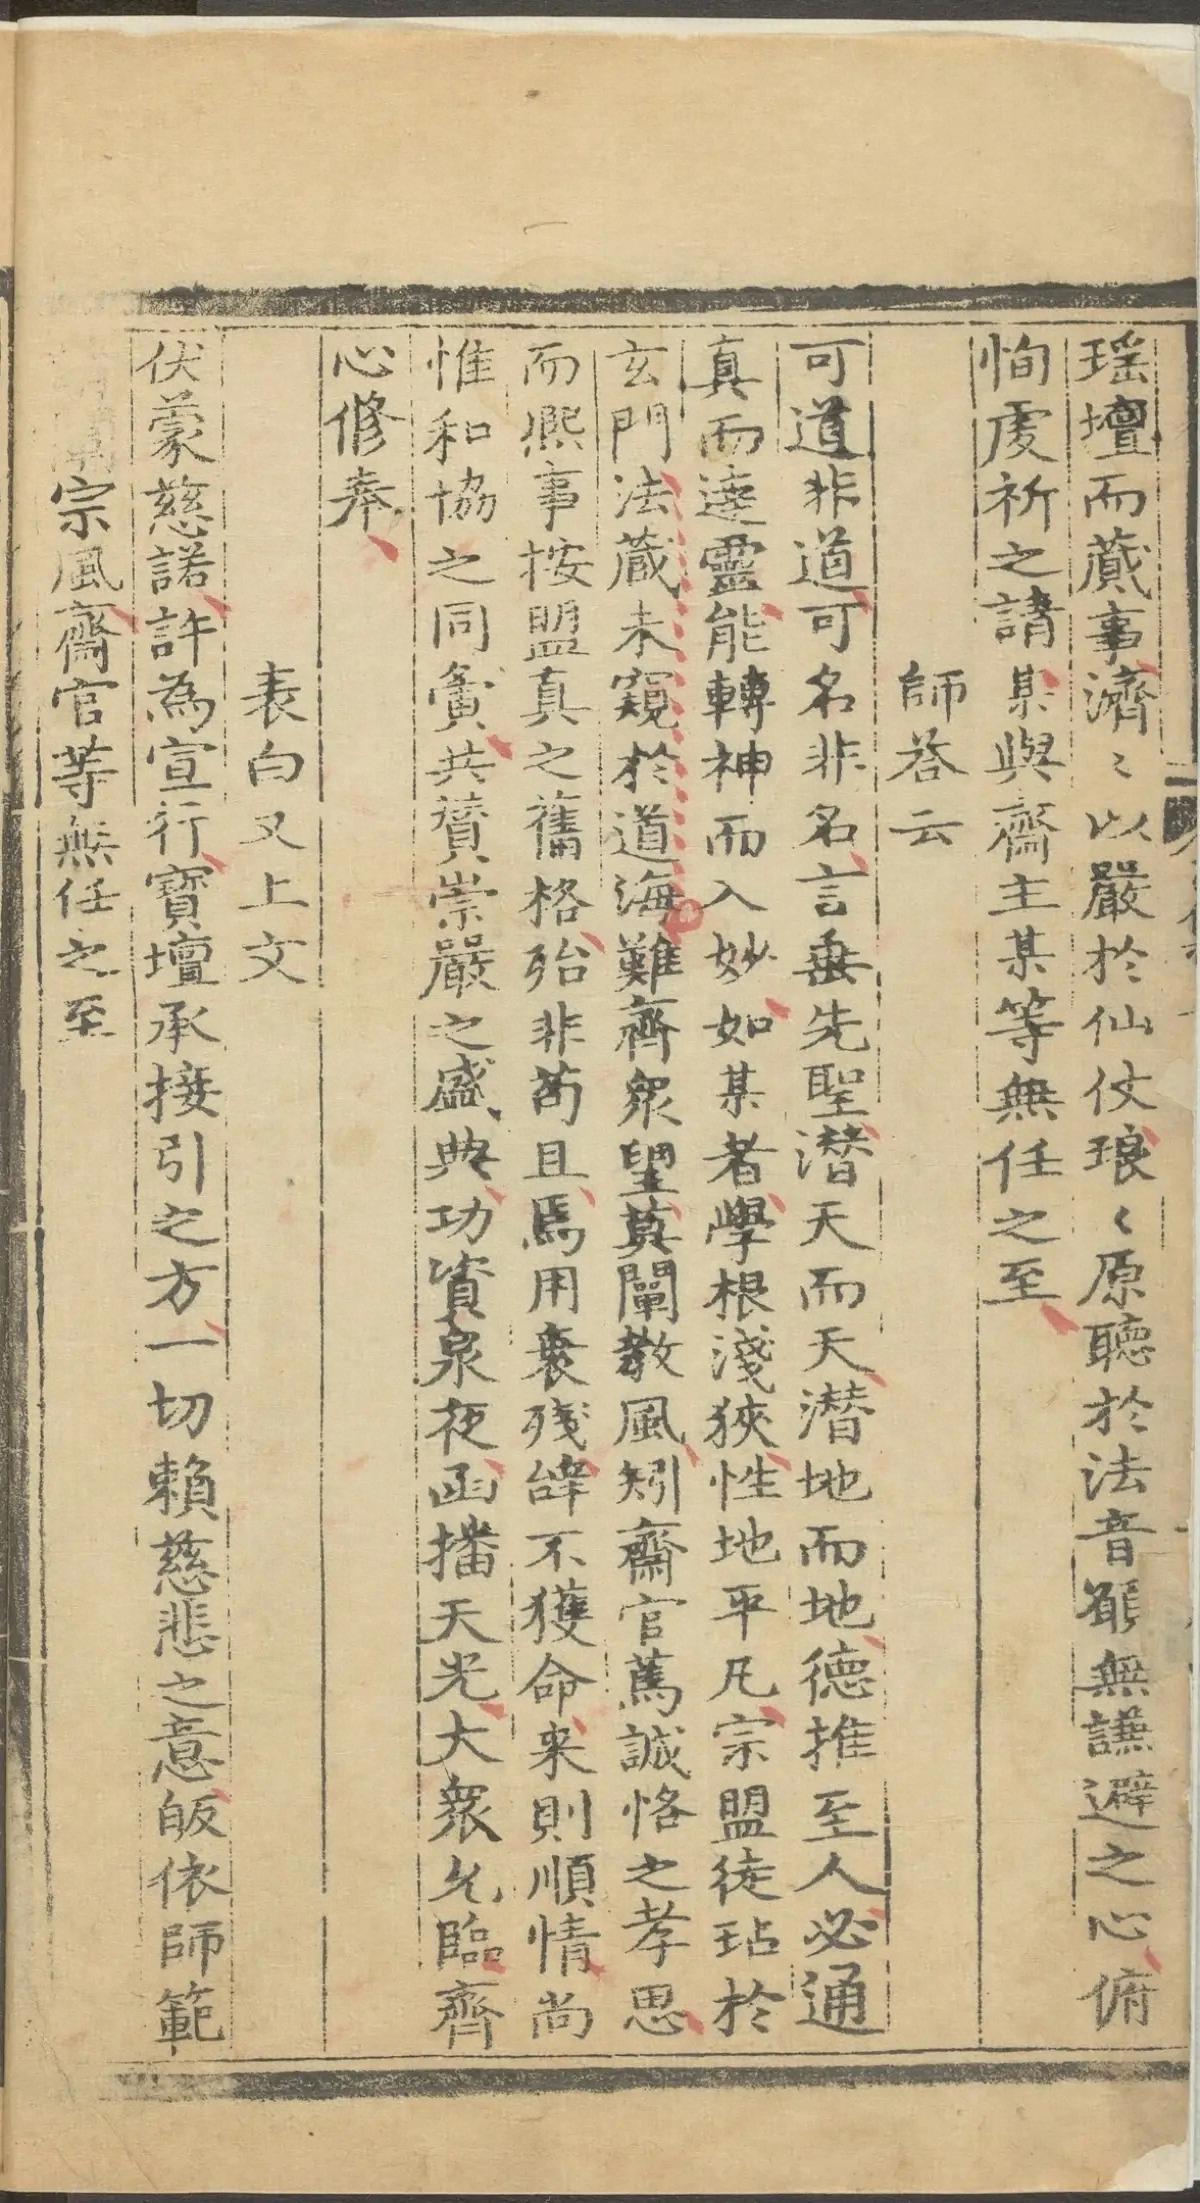 瑶壇而蕆事濟〻以嚴於仙仗琅〻原聽於法音願無謙避之心俯
恂虔祈之請某與齋主某等無任之至
師答云
可道非道可名非名言垂先聖潜天而天潜地而地德推至人必通
真而達靈能轉神而入妙如某者學根淺狹性地平凡宗盟徒玷於
玄門法蔵未窺於道海難齊衆望莫闡教風矧齋官篤誠恪之孝思
而熙事按盟真之舊格殆非茍且焉用衰殘辞不獲命来則順情尚
惟和協之同夤共賛崇嚴之盛典功資泉夜函播天光大衆允臨齊
心修奉
表白又上文
伏蒙慈諾許為宣行寶壇承接引之方一切賴慈悲之意皈依師範
宗風齋官等無任之至